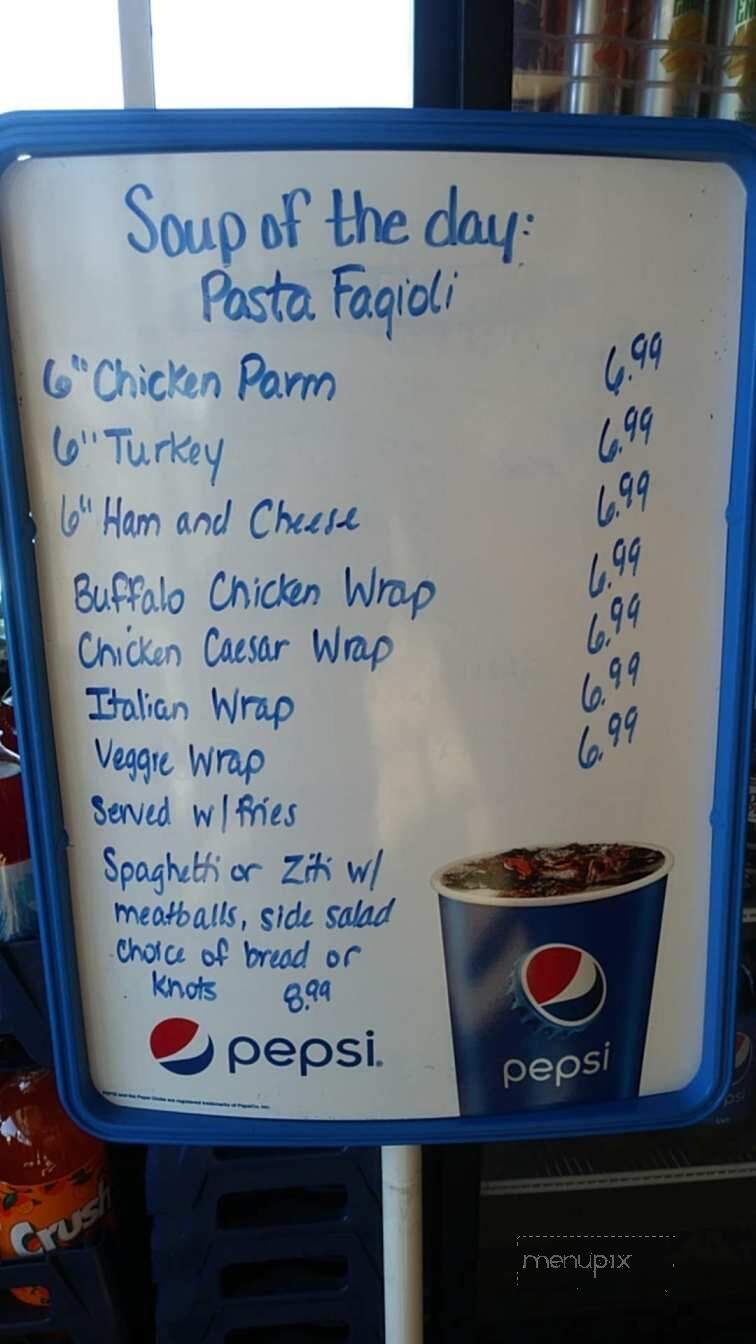 Soup of the day:
Pasta Fagioli
6" Chicken Parm 6.99
6" Turkey 6.99
6" Ham and Cheese 6.99
Buffalo Chicken Wrap 6.99
Chicken Caesar Wrap 6.99
Italian Wrap 6.99
Veggie Wrap 6.99
Served w/ fries
Spaghetti or Ziti w/
meatballs, side salad
choice of bread or
knots 8.99
pepsi
pepsi
Crush
menupix